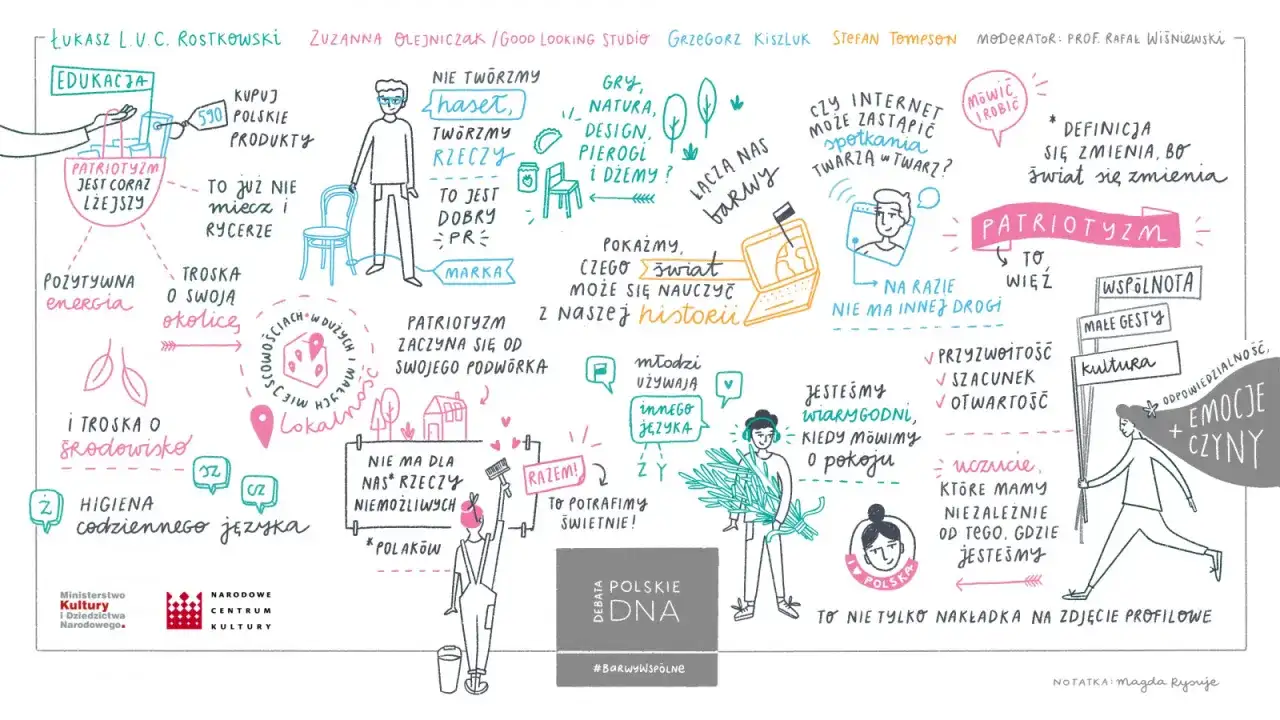 ŁUKASZ L.U.C. ROSTKOWSKI
ZUZANNA OLEJNICZAK / GOOD LOOKING STUDIO
GRZEGORZ KISZLUK
STEFAN TOMPSON
MODERATOR: PROF. RAFAŁ WIŚNIEWSKI
EDUKACJA
590
KUPUJ
POLSKIE
PRODUKTY
PATRIOTYZM
JEST CORAZ
LŻEJSZY
TO JUŻ NIE
miecz i
RYCERZE
POZYTYWNA
energia
TROSKA
O SWOJĄ
okolicę
I TROSKA O
środowisko
Ż
SZ
CZ
HIGIENA
codziennego języka
NIE TWÓRZMY
haseł,
TWÓRZMY
RZECZY
TO JEST
DOBRY
PR
MARKA
W DUŻYCH I MAŁYCH MIEJSCOWOŚCIACH
Lokalność
PATRIOTYZM
ZACZYNA SIĘ OD
SWOJEGO PODWÓRKA
NIE MA DLA
NAS* RZECZY
NIEMOŻLIWYCH
*POLAKÓW
RAZEM!
TO POTRAFIMY
ŚWIETNIE!
GRY,
NATURA,
DESIGN,
PIEROGI
I DŻEMY?
ŁĄCZĄ NAS
barwy
POKAŻMY,
CZEGO świat
MOŻE SIĘ NAUCZYĆ
Z NASZEJ historii
CZY INTERNET
MOŻE ZASTĄPIĆ
spotkania
TWARZĄ W TWARZ?
NA RAZIE
NIE MA INNEJ DROGI
młodzi
UŻYWAJĄ
innego
języka
Z Y
JESTEŚMY
WIARYGODNI,
KIEDY MÓWIMY
O pokoju
MÓWIĆ
I ROBIĆ
* DEFINICJA
SIĘ ZMIENIA, BO
świat się zmienia
PATRIOTYZM
TO
WIĘŹ
WSPÓLNOTA
MAŁE GESTY
kultura
PRZYZWOITOŚĆ
SZACUNEK
OTWARTOŚĆ
* ODPOWIEDZIALNOŚĆ,
EMOCJE
+ CZYNY
uczucie,
KTÓRE MAMY
NIEZALEŻNIE
OD TEGO, GDZIE
JESTEŚMY
I ♥ POLSKA
TO NIE TYLKO NAKŁADKA NA ZDJĘCIE PROFILOWE
Ministerstwo
Kultury
i Dziedzictwa
Narodowego.
NARODOWE
CENTRUM
KULTURY
DEBATA
POLSKIE
DNA
#BARWYWSPÓLNE
NOTATKA: Magda Rysuje